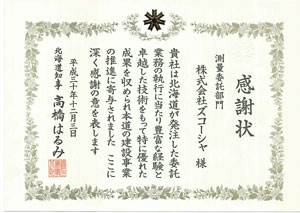 感謝状
測量委託部門
株式会社ズコーシャ 様
貴社は北海道が発注した委託
業務の執行に当たり豊富な経験と
卓越した技術をもって特に優れた
成果を収められ本道の建設事業
の推進に寄与されました ここに
深く感謝の意を表します
平成三十年十二月三日
北海道知事 高橋はるみ